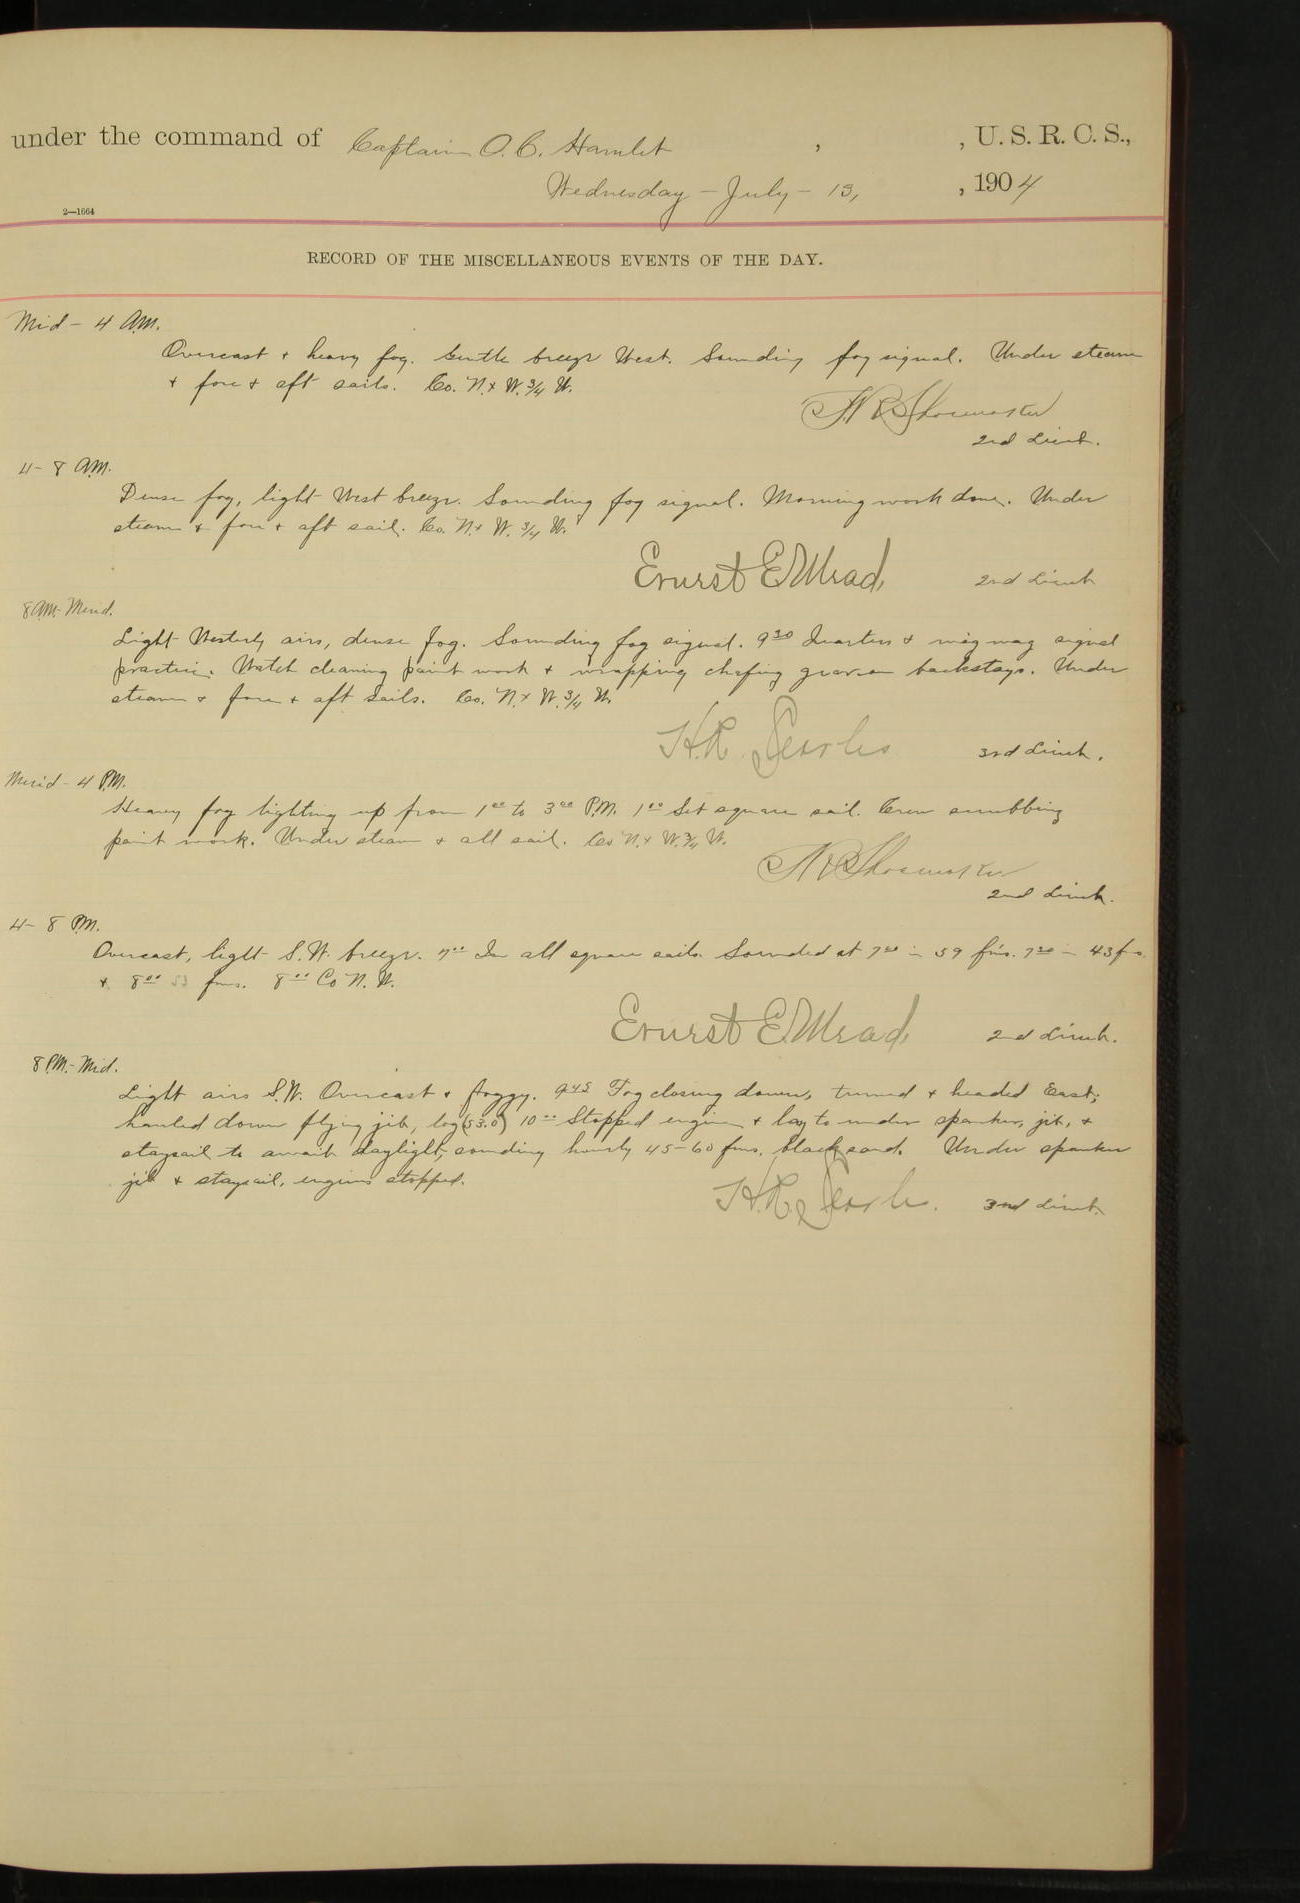 under the command of Captain O. C. Hamlet , , U. S. R. C. S.,
Wednesday - July - 13, , 1904
2—1664
RECORD OF THE MISCELLANEOUS EVENTS OF THE DAY.
Mid - 4 A.M.
Overcast + heavy fog. Gentle breeze West. Sounding fog signal. Under steam
+ fore + aft sails. Co. N. x W. 3/4 W.
2nd Lieut.
4 - 8 A.M.
Dense fog, light West breeze. Sounding fog signal. Morning work done. Under
steam + fore + aft sail. Co. N. x W. 3/4 W.
Ernest E. Mead, 2nd Lieut
8 A.M. - Merid.
Light Westerly airs, dense fog. Sounding fog signal. 9 30 Quarters + wig wag signal
practice. Watch cleaning paint work + wrapping chafing gear on backstays. Under
steam + fore + aft sails. Co. N. x W. 3/4 W.
H.R. Searles 3rd Lieut.
Merid - 4 P.M.
Heavy fog lighting up from 1 00 to 3 00 P.M. 1 00 Set square sail. Crew scrubbing
paint work. Under steam + all sail. Co N. x W. 3/4 W.
2nd Lieut.
4 - 8 P.M.
Overcast, light S.W. breeze. 7 00 In all square sails. Sounded at 7 00 in 59 fms. 7 30 in 43 fms
+ 8 00 53 fms. 8 00 Co N. W.
Ernest E. Mead, 2nd Lieut.
8 P.M. - Mid.
Light airs S.W. Overcast + foggy. 9 45 Fog closing down, turned + headed East;
hauled down flying jib, log (53.0) 10 00 Stopped engine + lay to under spanker, jib, +
staysail to await daylight, sounding hourly 45-60 fms. black sand. Under spanker
jib + staysail, engines stopped.
H.R. Searles. 3rd Lieut.